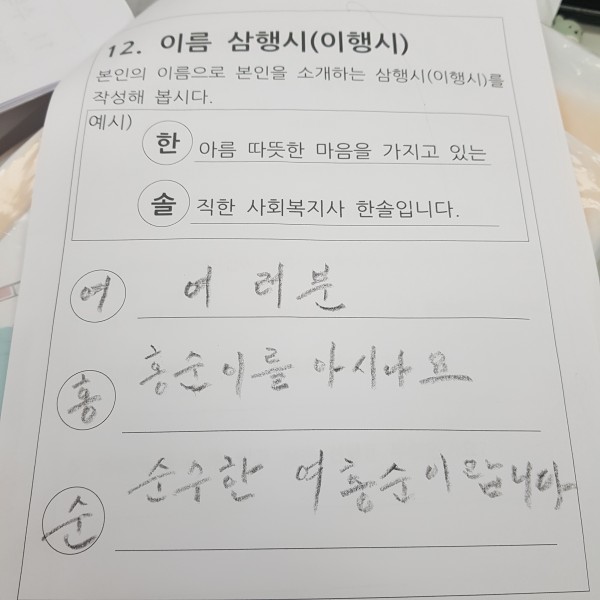 12. 이름 삼행시(이행시)
본인의 이름으로 본인을 소개하는 삼행시(이행시)를
작성해 봅시다.
예시)
한 아름 따뜻한 마음을 가지고 있는
솔 직한 사회복지사 한솔입니다.
여 여러분
홍 홍순이를 아시나요
순 순수한 여홍순이랍니다